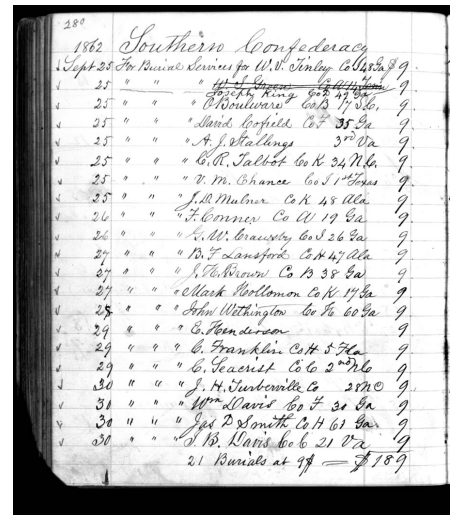 280
1862 Southern Confederacy
Sept 25 For Burial Services for W. V. Tinley Co I 48 Ga $ 9.
Co A Tenn
25 " " " Joseph King Co D 49 Ga 9.
25 " " " O Boulware Co B 17 S.C. 9.
25 " " " David Cofield Co F 35 Ga 9.
25 " " " A. J. Stallings 3rd Va 9.
25 " " " C. R. Talbot Co K 34 N.C. 9.
25 " " " V. M. Chance Co I 1st Texas 9.
25 " " " J. D. Mulner Co K 48 Ala 9.
26 " " " F. Conner Co A 19 Ga 9.
26 " " " G. W. Co I 26 Ga 9.
27 " " " B. F Lansford Co H 47 Ala 9.
27 " " " J. H. Brown Co B 38 Ga 9.
27 " " " Mark Hollomon Co K 17 Ga 9.
28 " " " John Wethington Co H 60 Ga 9.
29 " " " E. Henderson 9
29 " " " C. Franklin Co H 5 Fla 9
29 " " " C. Seacrist Co C 2nd N.C 9
30 " " " J. H. Turberville Co 28 NC 9.
30 " " " Wm Davis Co F 30 Ga 9
30 " " " Jas D Smith Co H 61 Ga. 9
30 " " " J B. Davis Co C 21 Va 9
21 Burials at 9$ — $189